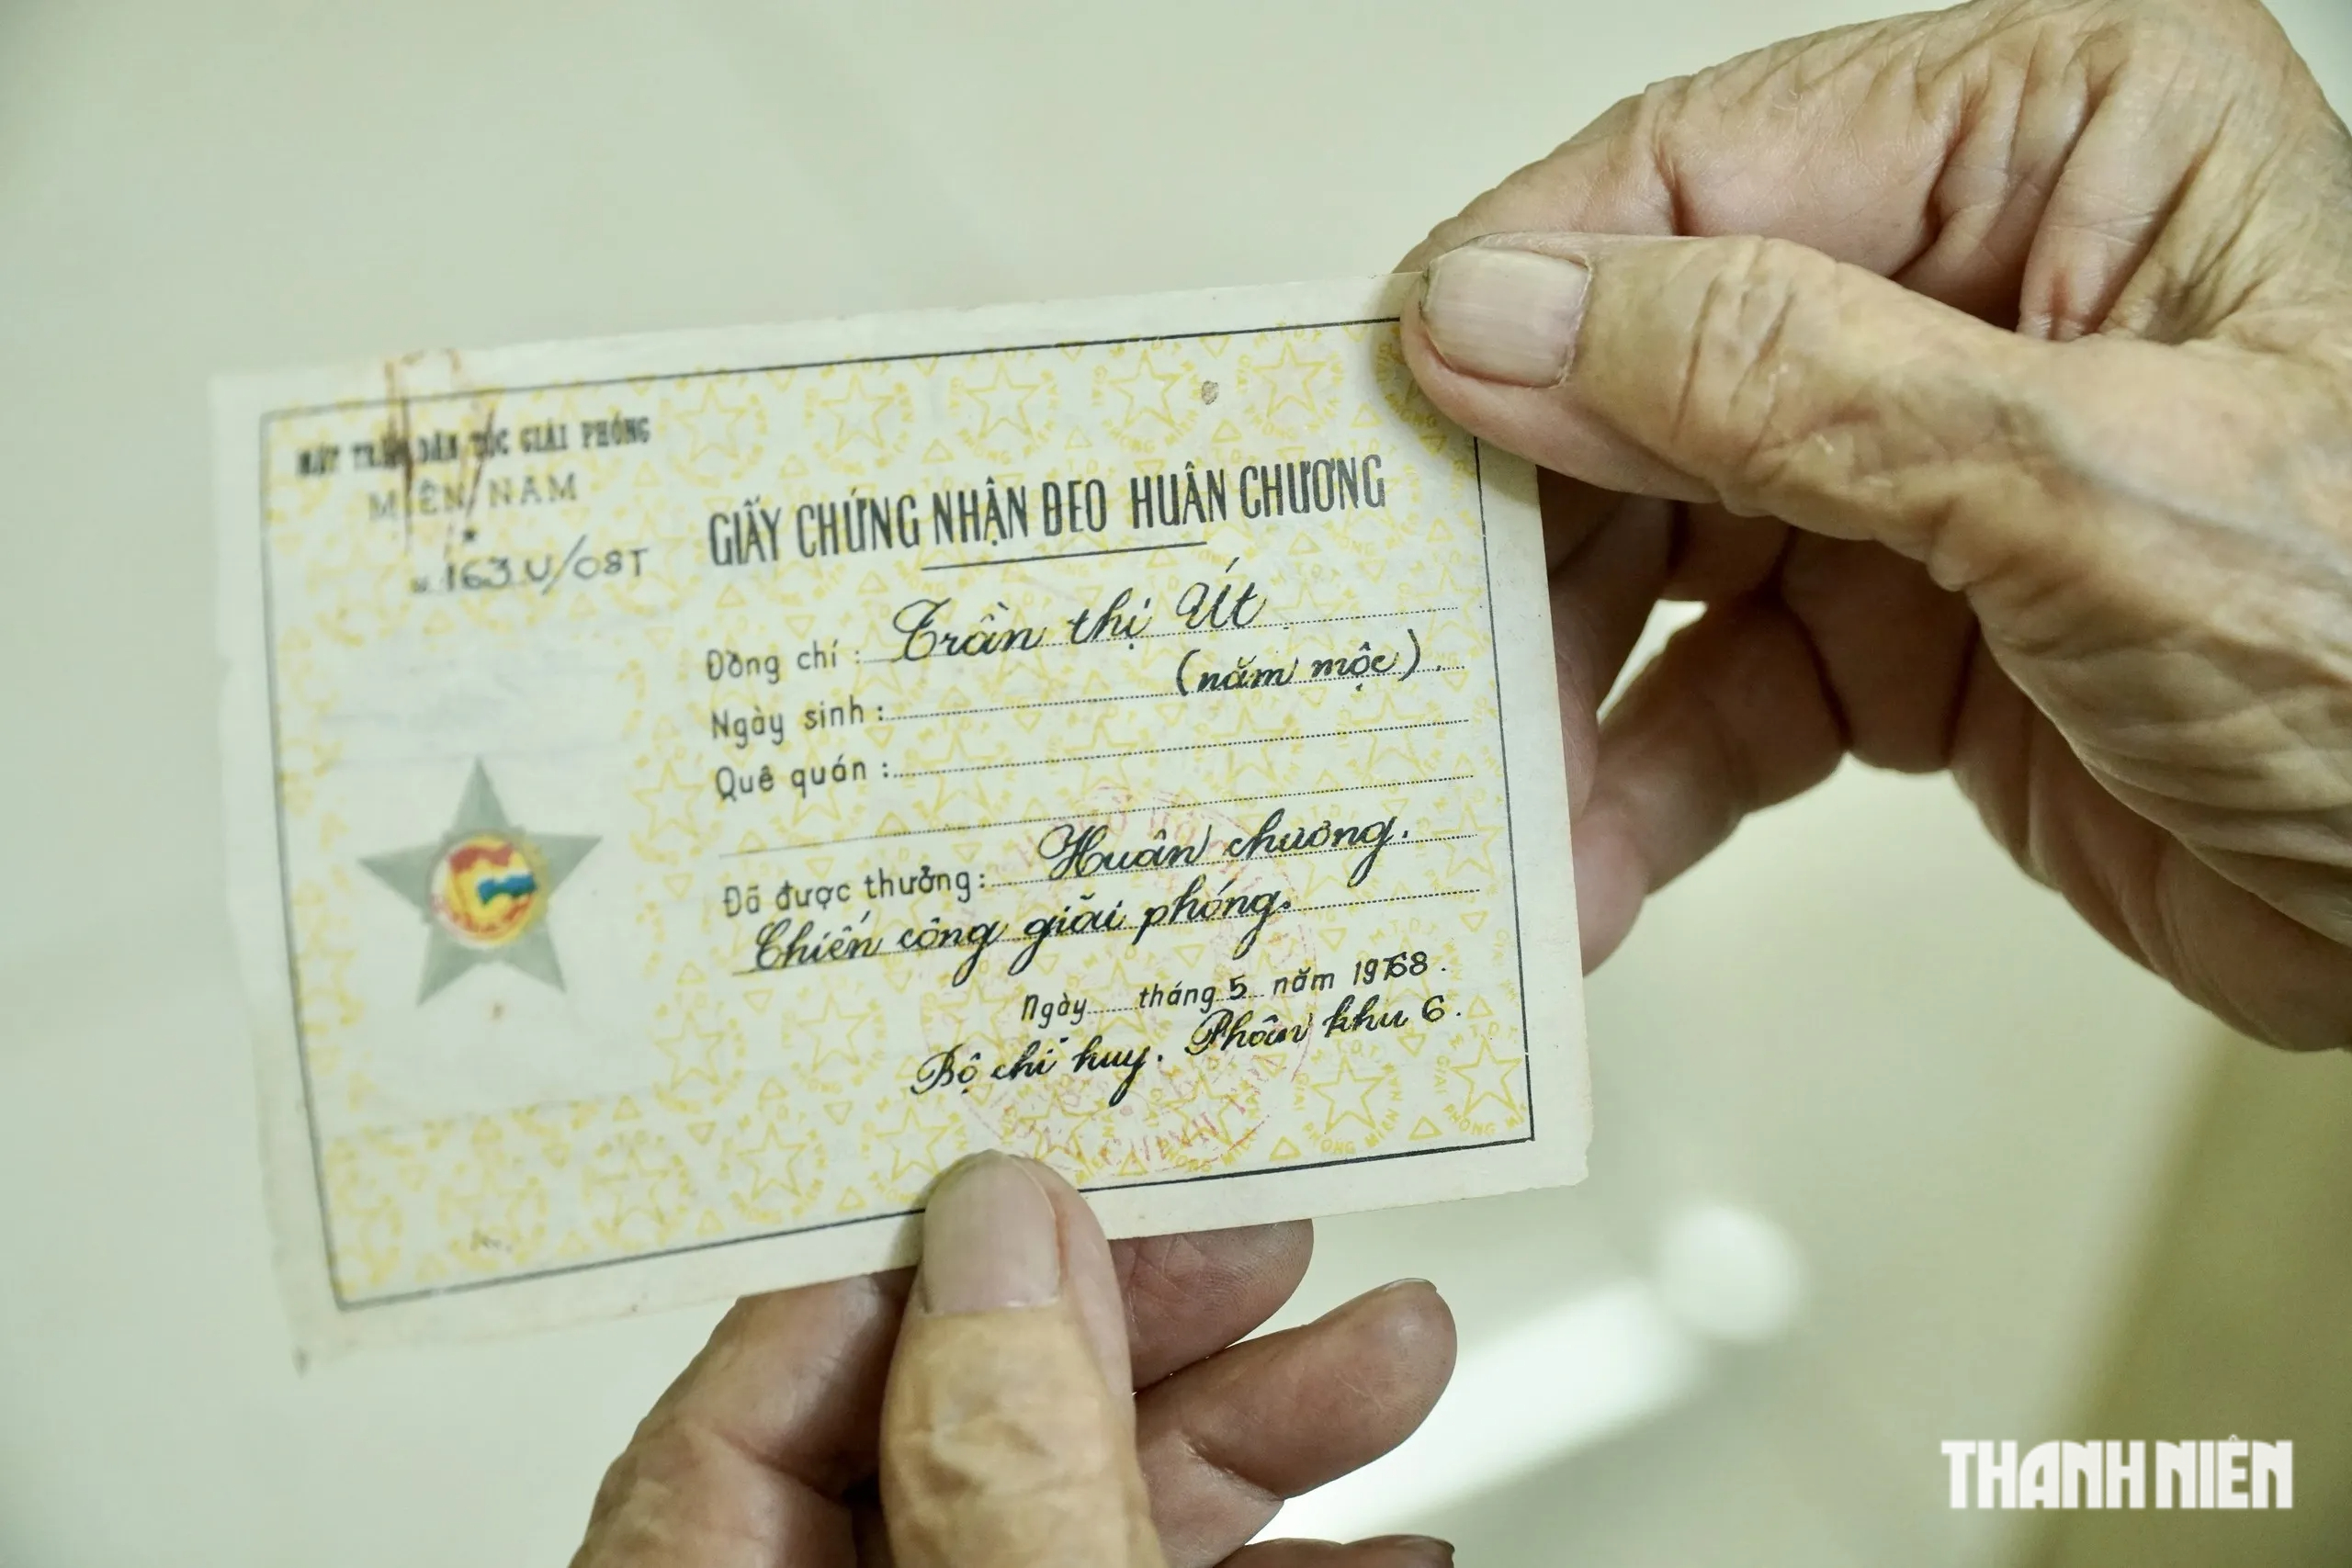 MẶT TRẬN DÂN TỘC GIẢI PHÓNG
MIỀN NAM
163 U/08T
GIẤY CHỨNG NHẬN ĐEO HUÂN CHƯƠNG
Đồng chí : Trần thị Út
(năm mộc).
Ngày sinh :
Quê quán :
Đã được thưởng: Huân chương.
Chiến công giải phóng.
Ngày tháng 5 năm 1968.
Bộ chỉ huy. Phân khu 6.
THANH NIÊN